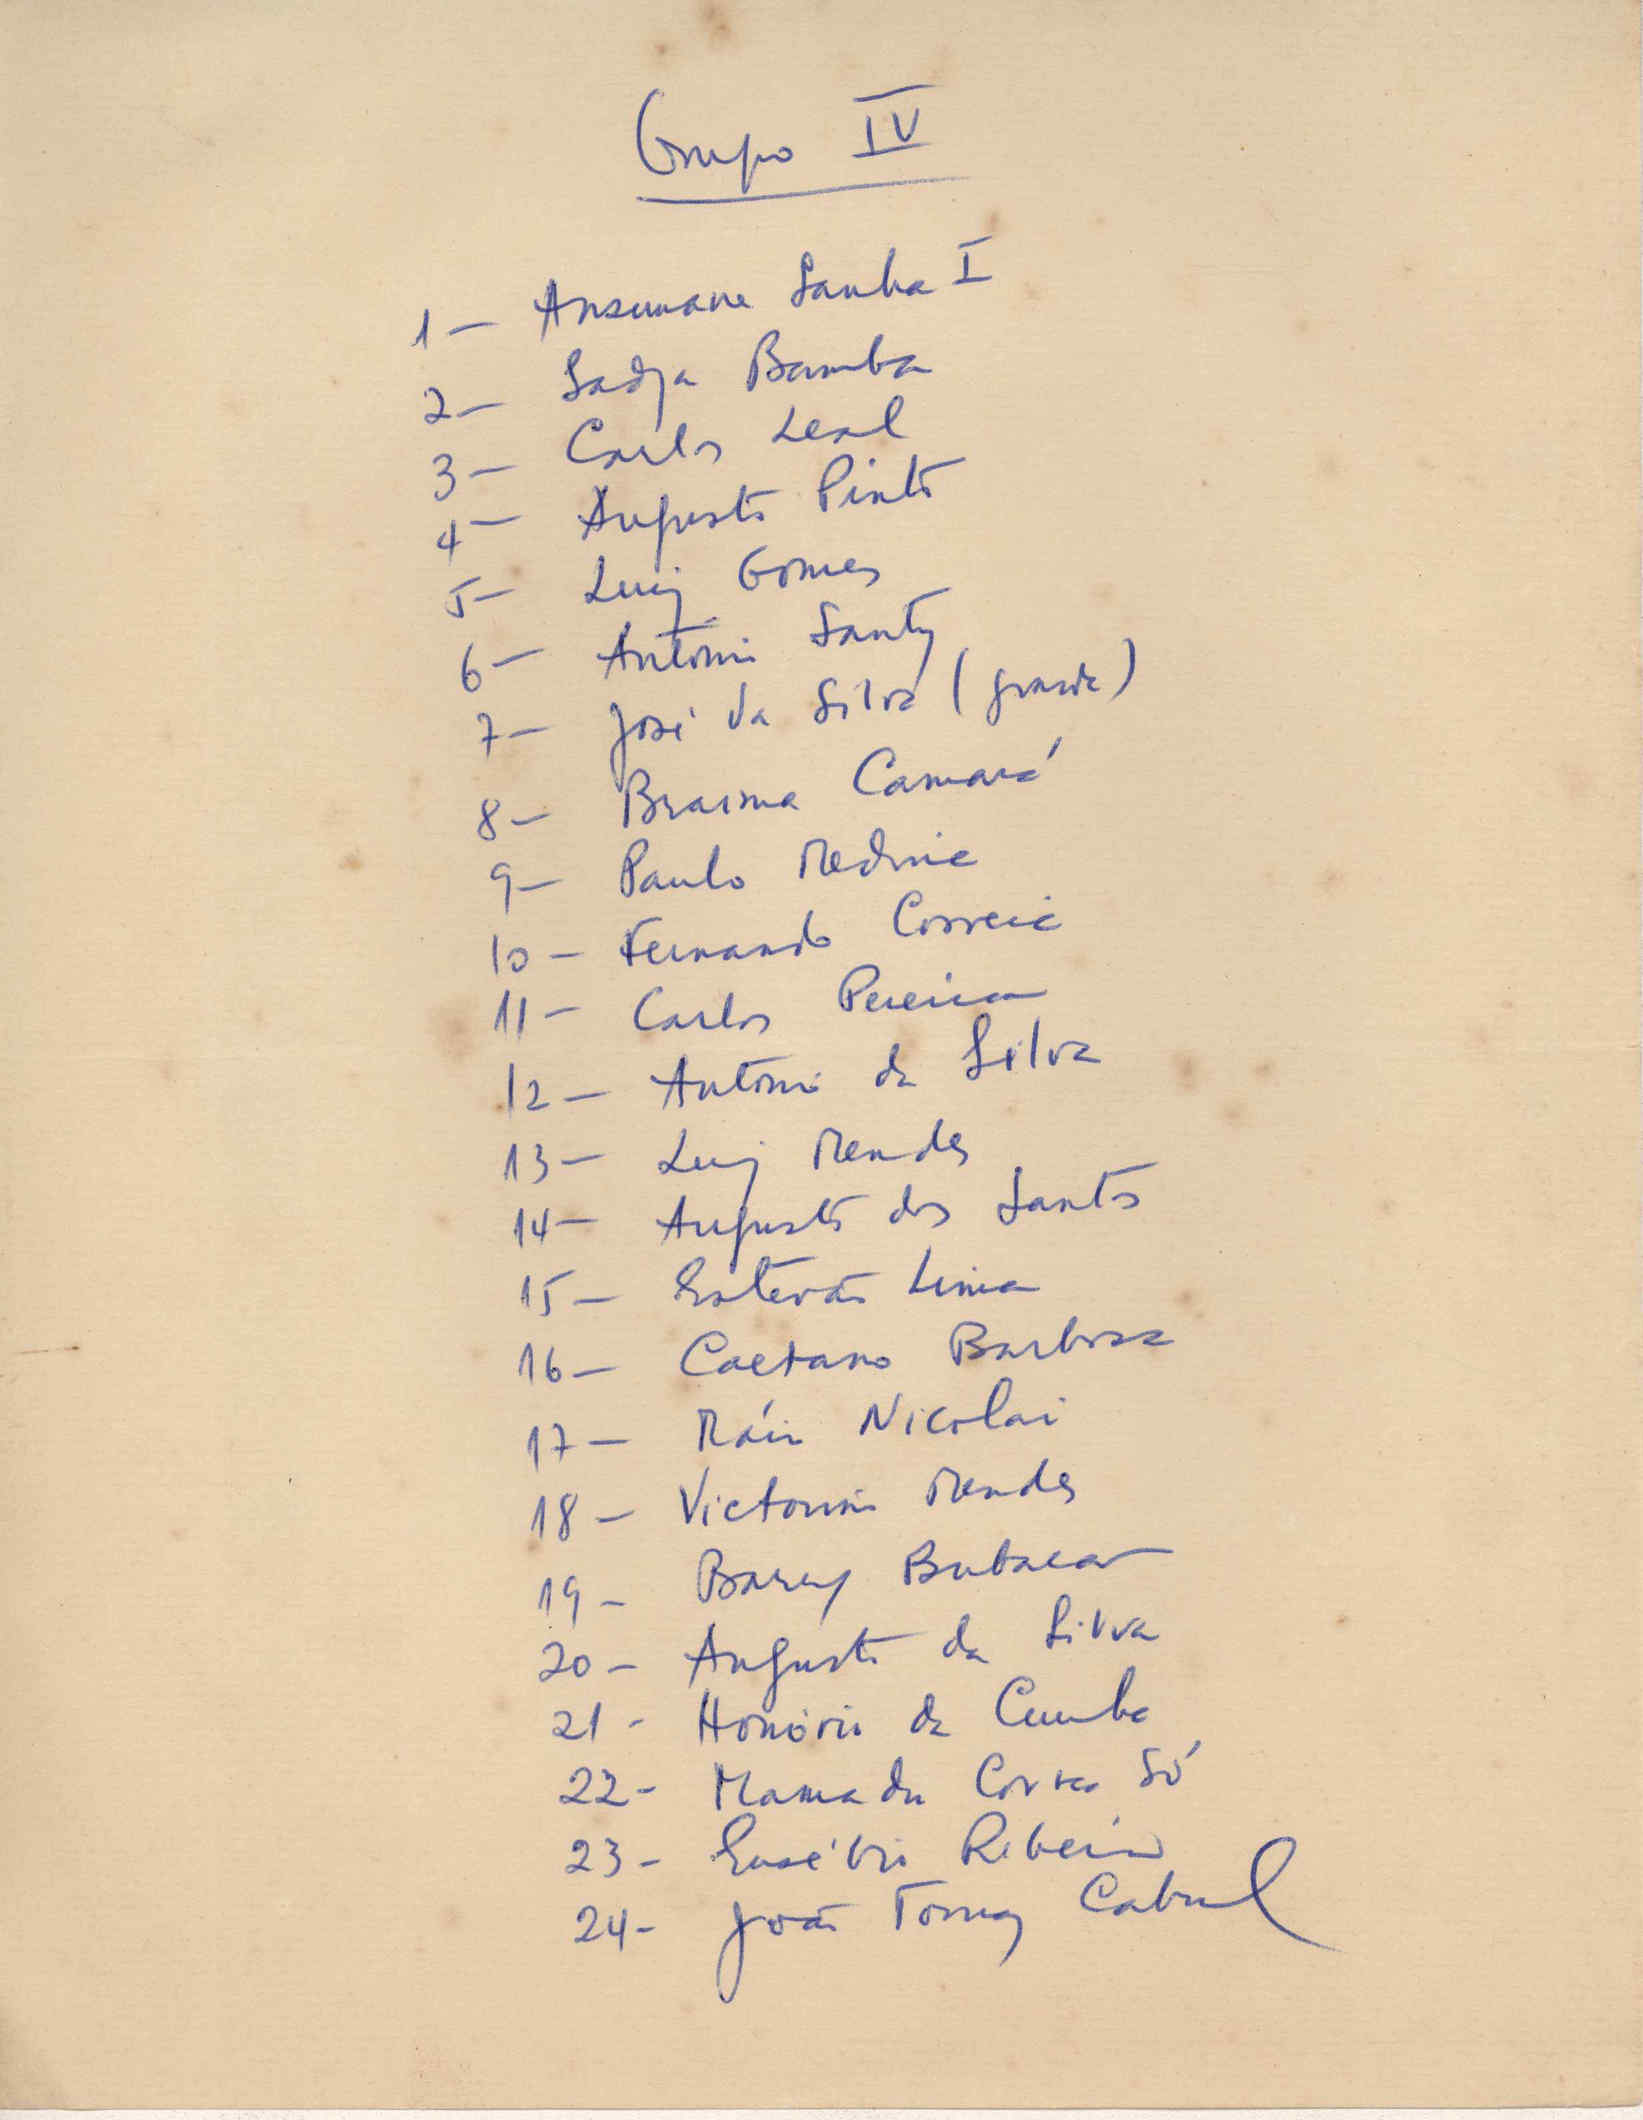 Grupo IV
1 — Ansumane Sanha I
2 — Sadja Bamba
3 — Carlos Leal
4 — Augusto Pinto
5 — Luiz Gomes
6 — António Santy
7 — José da Silva (grande)
8 — Braima Camará
9 — Paulo Medina
10 — Fernando Correia
11 — Carlos Pereira
12 — António da Silva
13 — Luiz Mendes
14 — Augusto dos Santos
15 — Estevão Lima
16 — Caetano Barbosa
17 — Nicolai
18 — Victorino Mendes
19 — Barry Bubacar
20 — Augusto da Silva
21 - Honório da Cunha
22 - Mamadu Só
23 - Eusébio Ribeiro
24 - João Tomaz Cabral